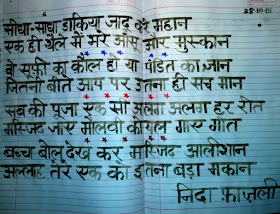 28-10-15
सीधा-साधा डाकिया जादू करे महान
एक ही थैले में भरे आँसू और मुस्कान
वो सूफी का कौल हो या पंडित का ज्ञान
जितनी बीते आप पर उतना ही सच मान
सब की पूजा एक सी अलग अलग हर रीत
मस्जिद जाए मौलवी कोयल गाए गीत
बच्चा बोला देख कर मस्जिद आलीशान
अल्लाह तेरे एक को इतना बड़ा मकान
निदा फ़ाज़ली